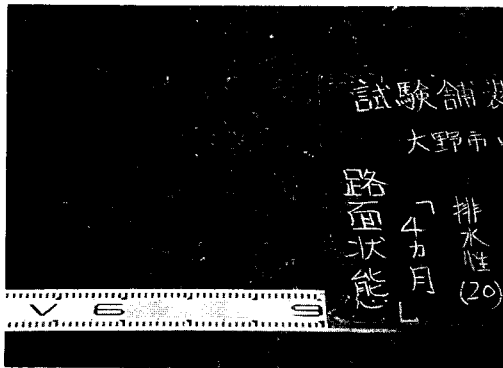 試験舗装
大野市
路面状態
「4カ月」
排水性(20)
6 9